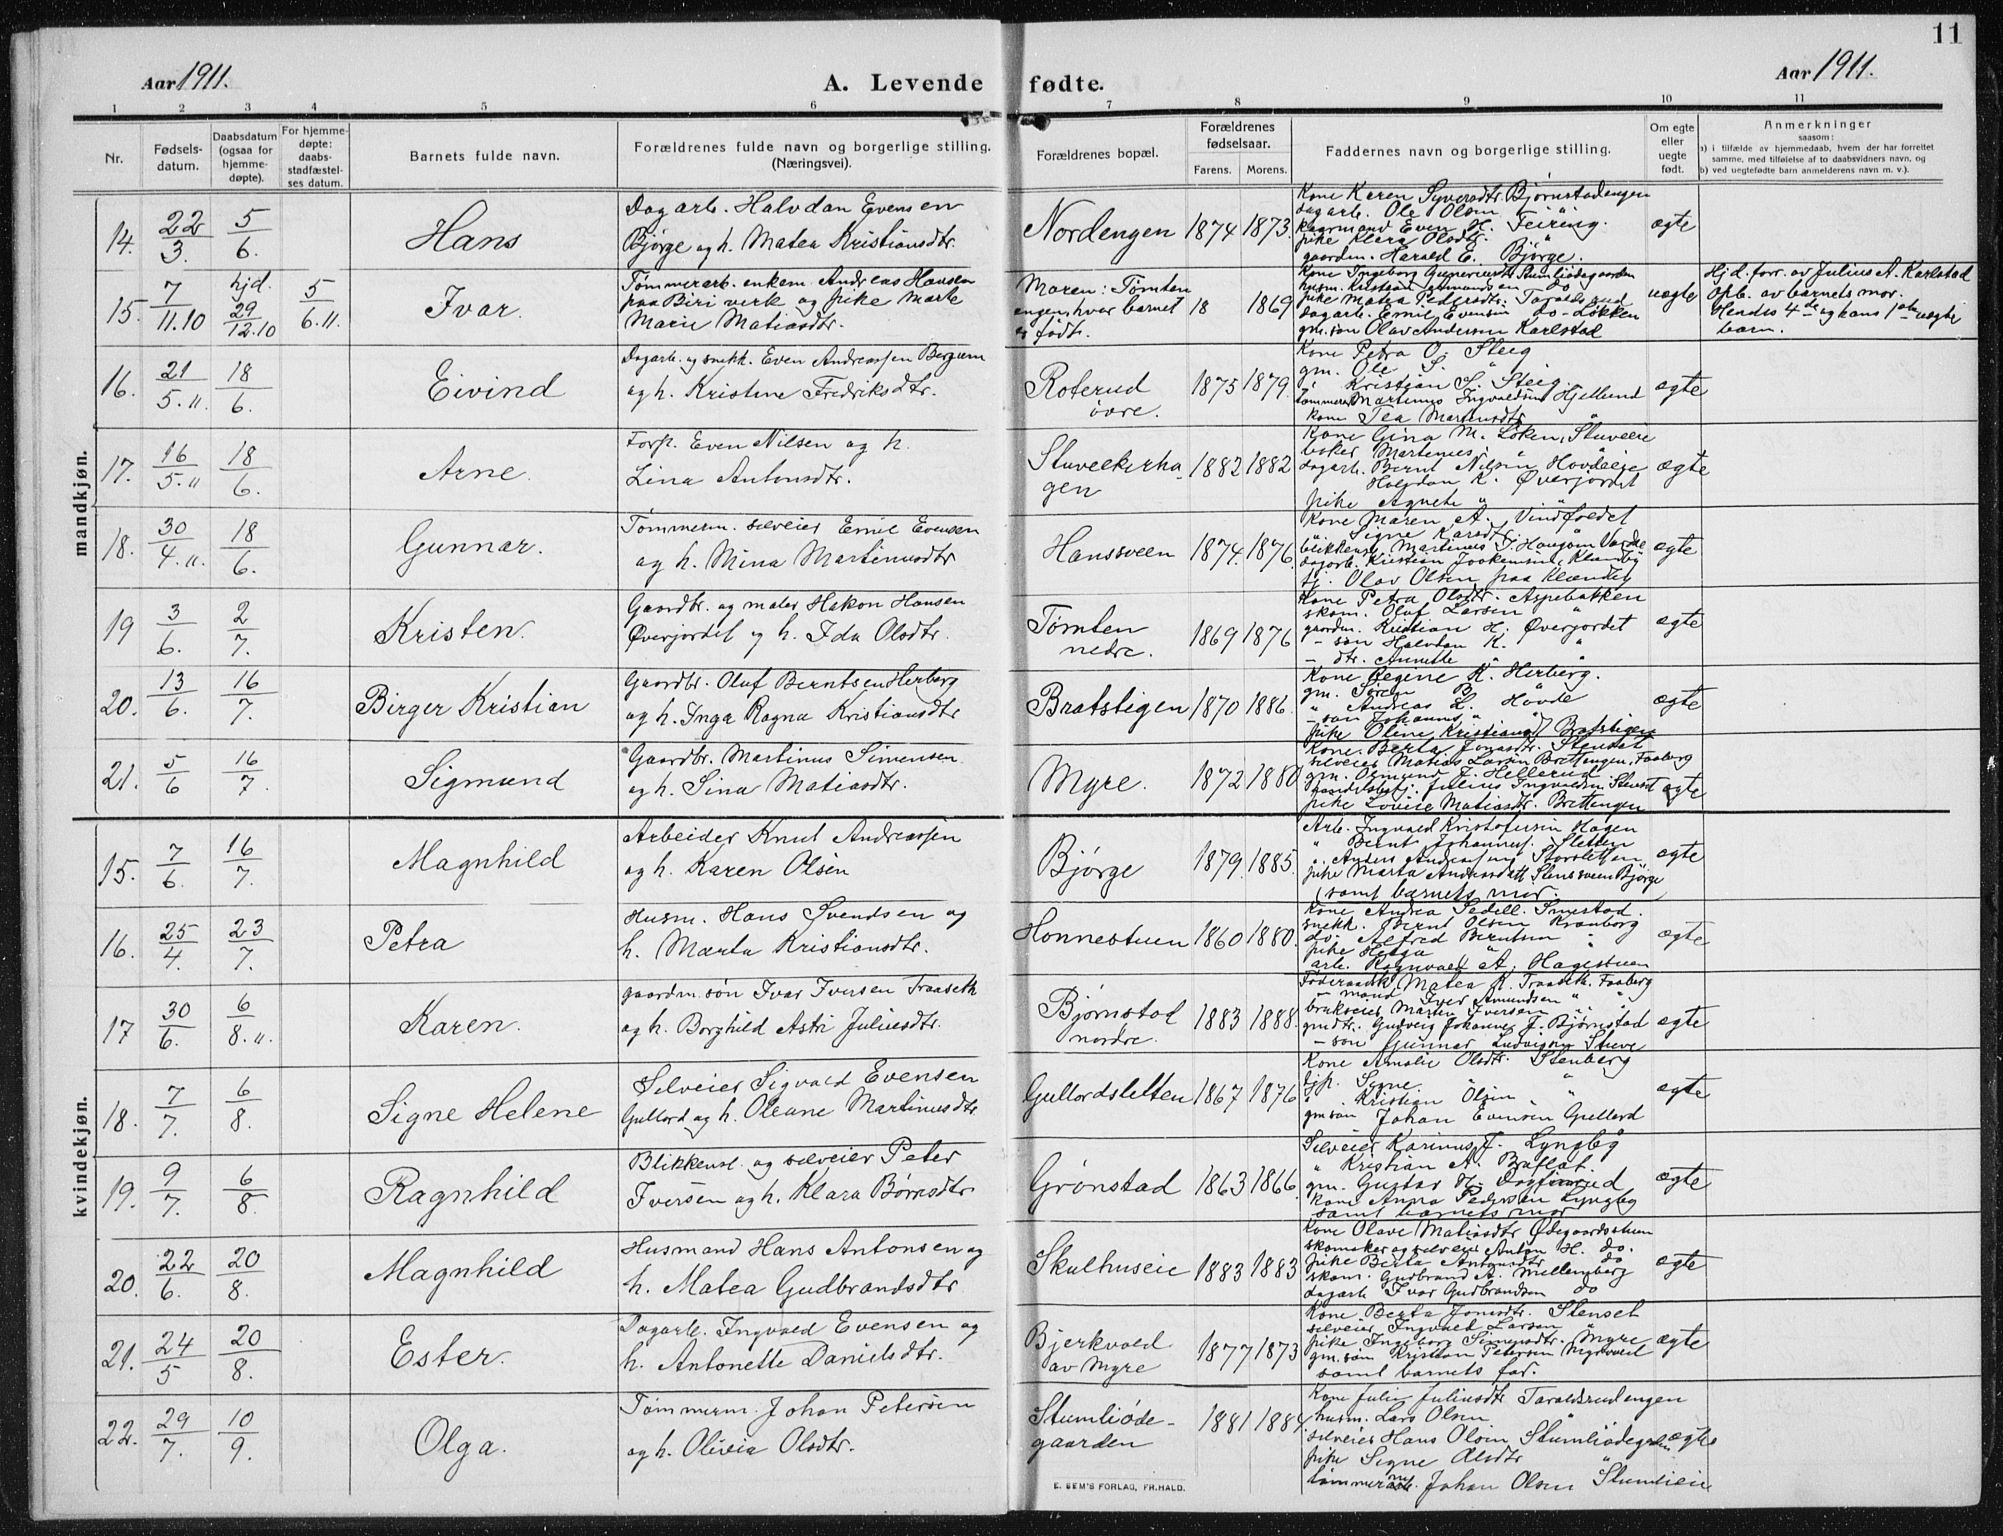 11
Aar 1911.
A. Levende fødte.
Aar 1911.
1 2 3 4 5 6 7 8 9 10 11
Nr.
Fødsels-
datum.
Daabsdatum
(ogsaa for
hjemme-
døpte).
For hjemme-
døpte:
daabs-
stadfæstel-
ses datum.
Barnets fulde navn.
Forældrenes fulde navn og borgerlige stilling.
(Næringsvei).
Forældrenes bopæl.
Forældrenes
fødselsaar.
Farens. Morens.
Faddernes navn og borgerlige stilling.
Om egte
eller
uegte
født.
Anmerkninger
saasom:
a) i tilfælde av hjemmedaab, hvem der har forrettet
samme, med tilføielse af to daabsvidners navn, og
b) ved uegtefødte barn anmelderens navn m. v.).
mandkjøn.
14. 22/3. 5/6. Hans
Dagarb. Halvdan Evensen
Bjørge og h. Matea Kristiansdtr.
Nordengen 1874 1873. ægte
Kone Karen Syversdtr. Bjørnstadengen
dagarb. Ole Olsen "
kaarmand Even H. Feiring.
pike Klara Olsdtr. "
gaardm. Harald E. Bjørge.
15. 7/11.10 hjd. 29/12.10 5/6.11. Ivar.
Tømmerarb. enkem. Andreas Hansen
paa Biri verk og pike Marte
Marie Matiasdtr.
Maren: Tømten
engen, hvor barnet
er født.
18 1869 uegte
husm. Kristian Amundsen do
pike Matea Pedersdtr. Taralds rud
dagarb. Emil Evensen do - Løkken
gm. søn Olav Andersen Karlstad
Hjd. forr. av Julius A. Karlstad
Opb. av barnets mor.
Hendes 4de og hans 1ste uegte
barn.
16. 21/5.11. 18/6. Eivind
Dagarb. og snekk. Even Andreassen Bergum
og h. Kristine Fredriksdtr.
Roterud
øvre.
1875 1879. ægte
Kone Petra O. Steig
gm. Ole S. "
" Kristian S. Steig.
tømmerm. Martinus Ingvaldsen Hjellund
kone Tea Martinsdtr. "
17. 16/5.11 18/6. Arne.
Forp. Even Nilsen og h.
Lina Antonsdtr.
Stuveekerha-
gen
1882 1882 ægte
Kone Gina M. Løken, Stuveeie
Martenius "
dagarb. Bernt Nilsen Hovdeeie
Halvdan K. Øverjordet
pike Agnete "
18. 30/4.11. 18/6. Gunnar.
Tømmerm. selveier Emil Evensen
og h. Mina Martinusdtr.
Hanssveen 1874. 1876. ægte
Kone Maren A. Vindfledet
" Signe Karsdtr. "
19 3/6. 2/7. Kristen.
Gaardbr. og maler Hakon Hansen
Øverjordet og h. Ida Olsdtr.
Tømten
nedre.
1869 1876 ægte
Kone Petra Olsdtr. Aspebakken
skom. Oluf Larsen "
gaardm. Kristian H. Øverjordet
- søn Halvdan K. "
- dtr. Annette " "
20. 13/6. 16/7. Birger Kristian
Gaardbr. Oluf Berntsen Herberg
og h. Inga Ragna Kristiansdtr.
Bratstigen 1870 1886. ægte
Kone Regine K. Herberg.
gm. Søren B. "
" Andreas L. Hovde
- søn Johannes " "
pike Oline Kristiansd/ Bratstigen
21. 5/6 16/7. Sigmund
Gaardbr. Martinus Simensen
og h. Sina Matiasdtr.
Myre. 1872 1880 ægte
Kone Berta Jonasdtr. Stenset
selveier Matias Larsen Brettengen, Faaberg
gm. Osmund J. Hellerud
Julius Ingvaldsen Stenset
pike Lovise Matiasdtr. Brettengen
kvindekjøn.
15. 7/6. 16/7. Magnhild
Arbeider Knut Andreassen
og h. Karen Olsen
Bjørge 1879. 1885. ægte
Arb. Ingvald Kristofersen Hagen
" Bernt Johannes. Sletten
" Anders Andreassen Storsletten
pike Marta Andreasdtt Stenssveen Bjørge
samt barnets mor.
16. 25/4. 23/7. Petra
Husm. Hans Svendsen og
h. Marta Kristiansdtr.
Honnestuen 1860 1880. ægte
Kone Andrea Sedell. Smestad.
snekk. Bernt Olsen Kronborg
do. Alfred Berntsen "
pike Helga " "
arb. Ragnvald A. Hagestuen
17 30/6. 6/8.11. Karen.
gaardm. søn Ivar Iversen Traaseth
og h. Borghild Astri Juliusdtr.
Bjørnstad
nordre.
1883 1888. ægte
Føderaadsk. Matea K. Traaseth. Faaberg
- mand Iver Amundsen " "
brukseier Martin Iversen " "
gmdtr. Gudveig Johanne J. Bjørnstad
- søn Gunnar Ludvigsen Stuve
18. 7/7. 6/8. Signe Helene
Selveier Sigvald Evensen
Gullord og h. Oleane Martinusdtr
Gullordsletten 1867 1876 ægte
Kone Amalie Olsdtr. Stenberg
tjp. Signe. "
" Kristian Olsen "
gm søn Johan Evensen Gullord
19. 9/7. 6/8. Ragnhild
Blikkensl. og selveier Peter
Iversen og h. Klara Børresdtr.
Grønstad 1863 1866. ægte
Selveier Karinus J. Lyngby
" Kristian A. Baflat.
gm. Gustav H.
kone Anna Pedersen Lyngby
samt barnets mor
20. 22/6. 20/8. Magnhild
Husmand Hans Antonsen og
h. Matea Gudbrandsdtr.
Skulhuseie 1883 1883 ægte
Kone Olave Matiasdtr Ødegaardsstuen
skomaker og selveier Anton H. do.
pike Berta Antonsdtr do
skom. Gudbrand A. Mellemberg
dagarb Ivar Gudbrandsen do
21. 24/5 20/8. Ester.
Dagarb. Ingvald Evensen og
h. Antonette Danielsdtr.
Bjerkvold
av Myre
1877 1873 ægte
Kone Berta Jonasdtr. Stenset
selveier Ingvald Larsen "
pike Ingeborg Simensdtr. Myre
gm. søn Kristian Petersen Myrvold
samt barnets far.
22. 29/7. 10/9. Olga.
Tømmerm. Johan Petersen
og h. Olivia Olsdtr.
Stumliøde-
gaarden
1881 1884. ægte
Kone Julie Juliusdtr Taraldsrudengen
husm. Lars Olsen "
selveier Hans Olsen Stumliødegrden
pike Signe Olsdtr "
Johan Olsen Stumlieie
E. SEM'S FORLAG, FR.HALD.